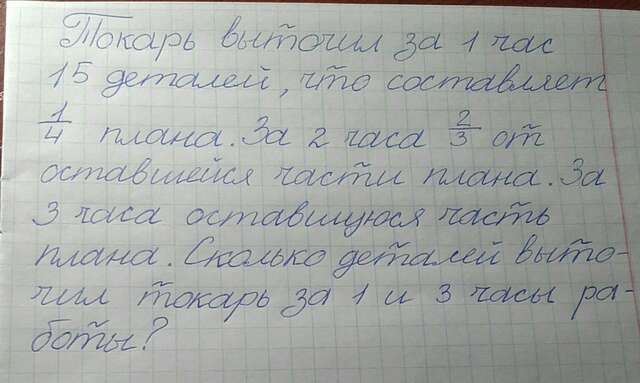 Токарь выточил за 1 час
15 деталей, что составляет
1/4 плана. За 2 часа 2/3 от
оставшейся части плана. За
3 часа оставшуюся часть
плана. Сколько деталей выто-
чил токарь за 1 и 3 часы ра-
боты?